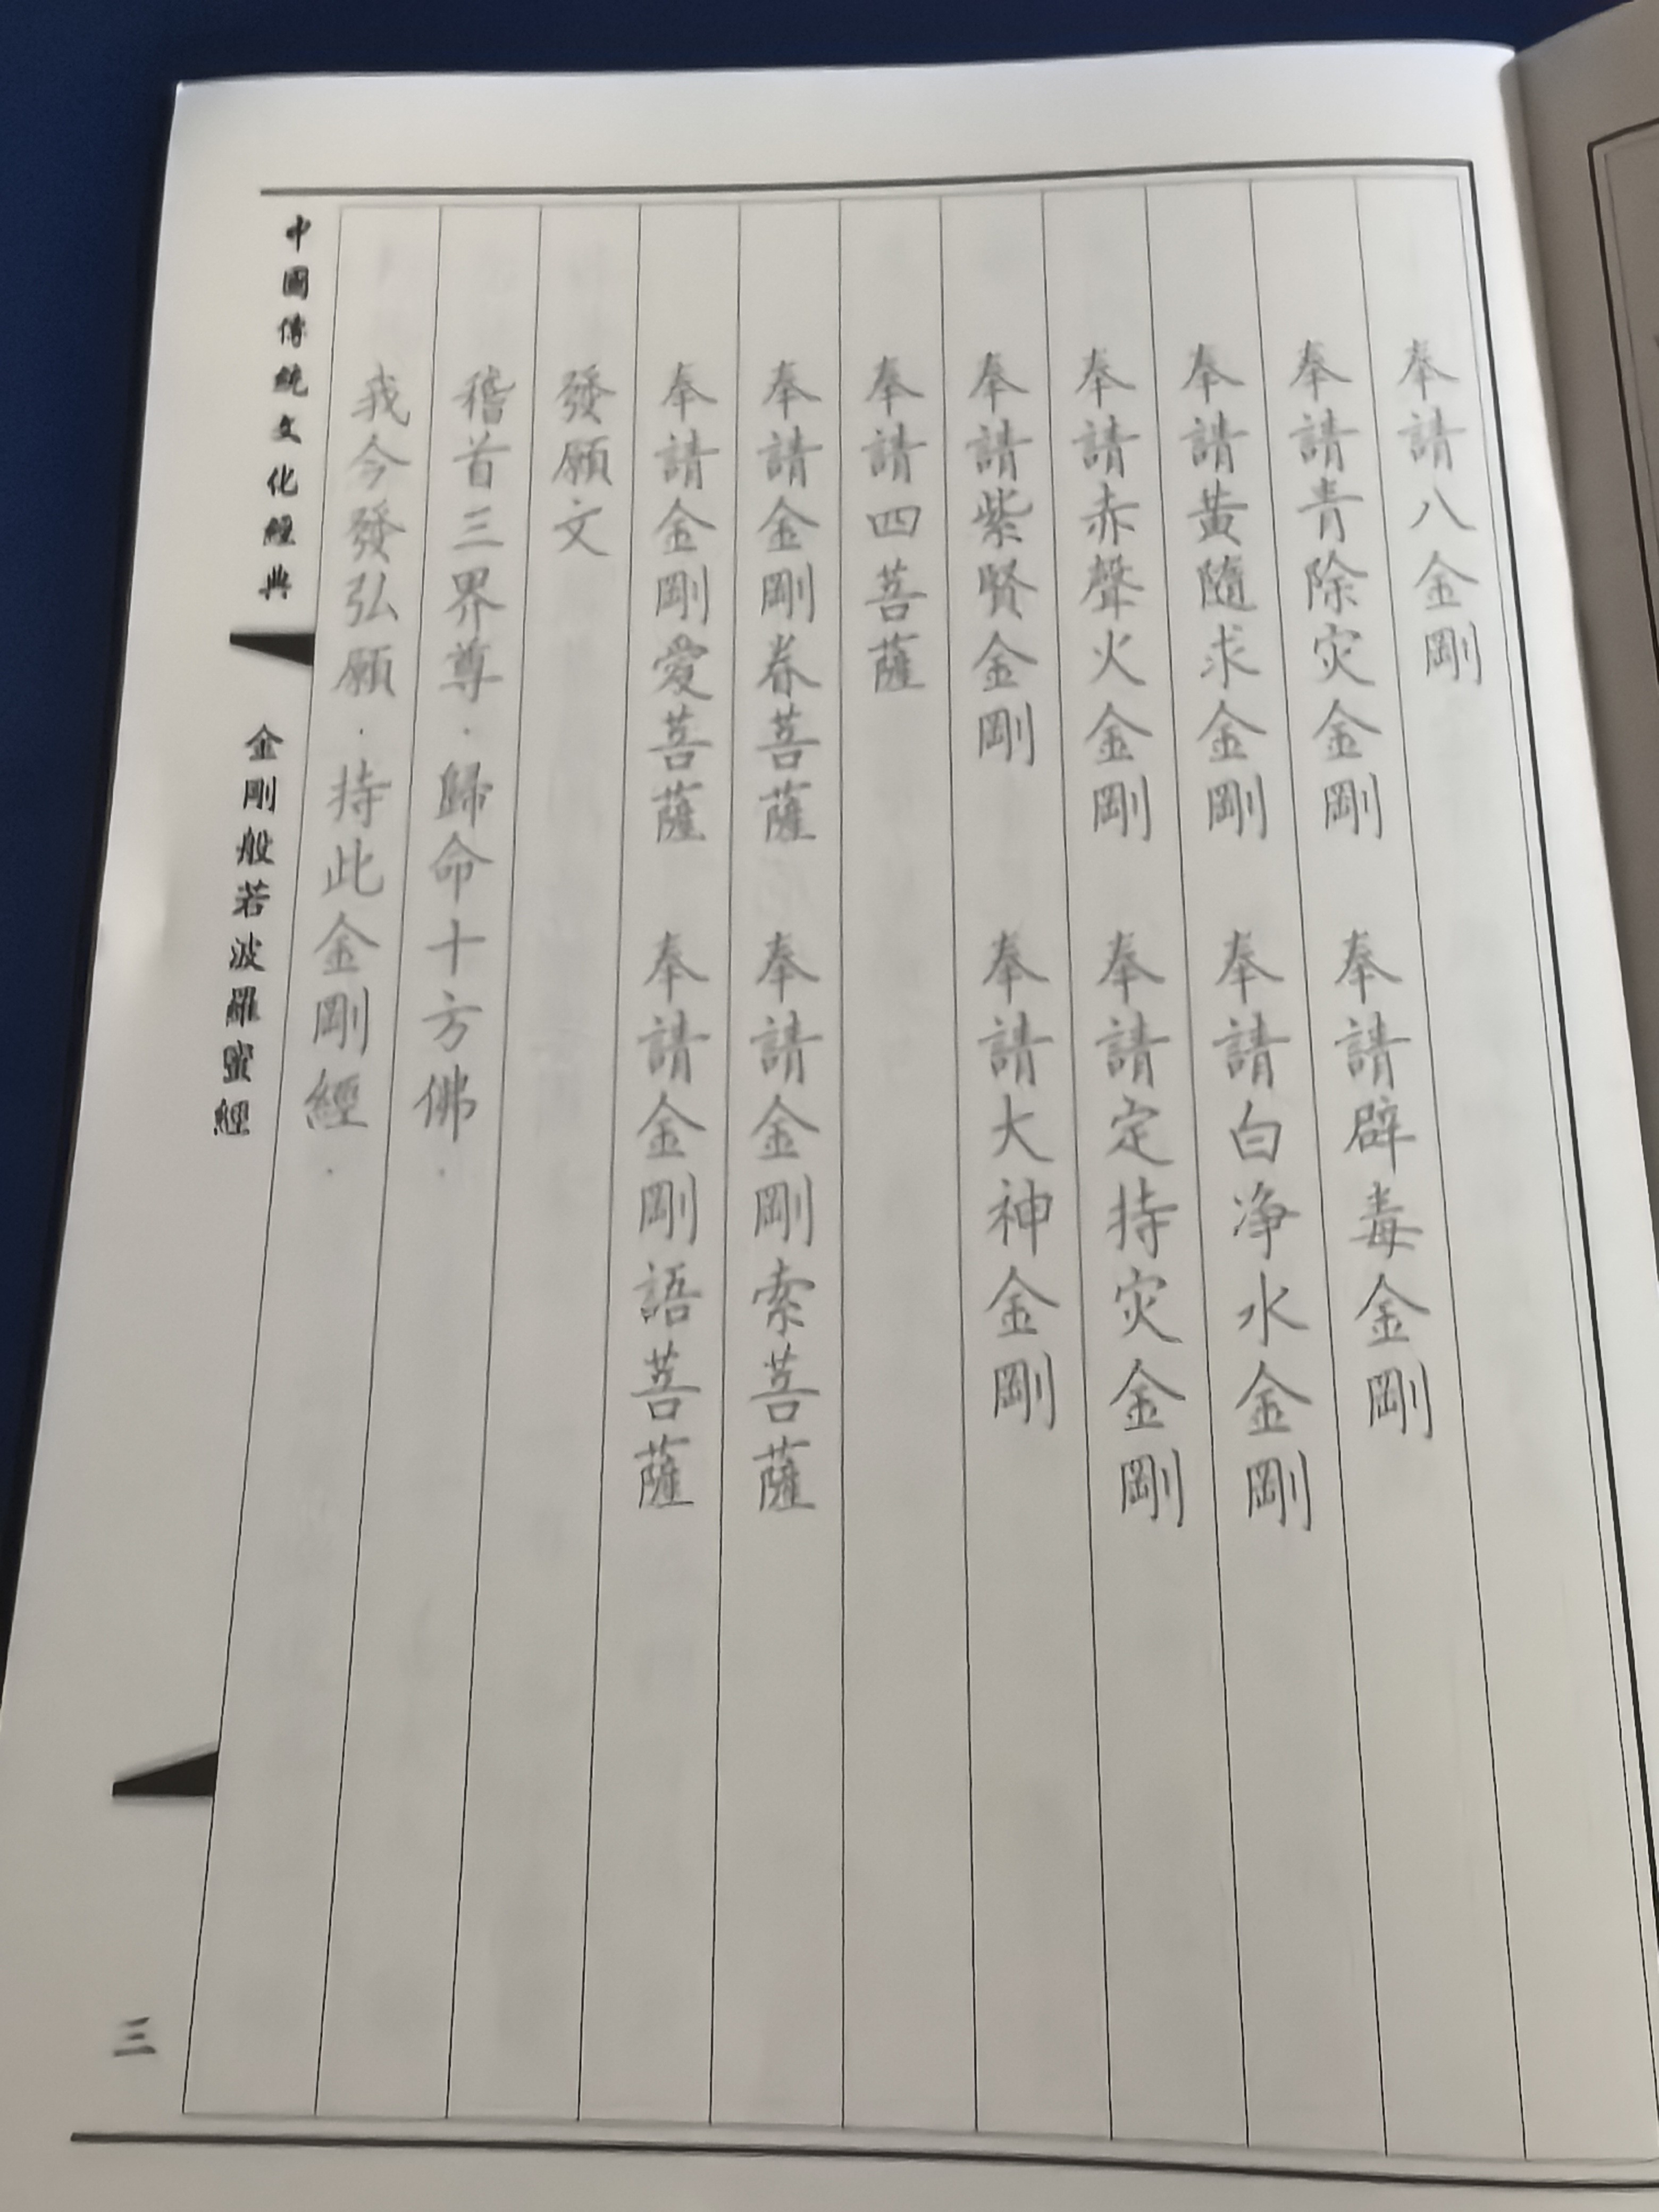 奉請八金剛
奉請青除灾金剛 奉請辟毒金剛
奉請黃隨求金剛 奉請白净水金剛
奉請赤聲火金剛 奉請定持灾金剛
奉請紫賢金剛 奉請大神金剛
奉請四菩薩
奉請金剛眷菩薩 奉請金剛索菩薩
奉請金剛愛菩薩 奉請金剛語菩薩
發願文
稽首三界尊·歸命十方佛·
我今發弘願·持此金剛經·
中國傳統文化經典
金剛般若波羅蜜經
三